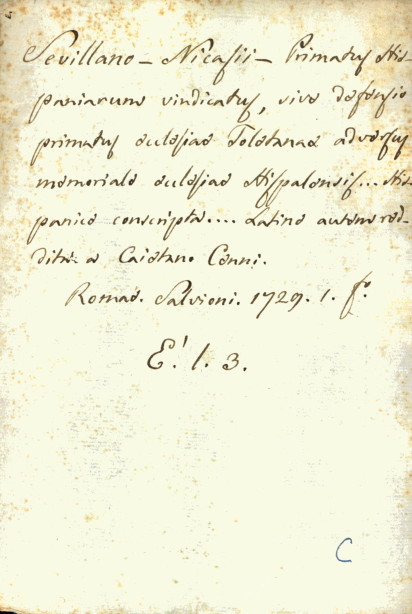 Sevillano - Nicasii - Primatus His-
paniarum vindicatus, sive defensio
primatus eclesiae Toletanae adversus
memoriale eclesiae Hispalensis... His-
panice conscripta.... Latine autem red-
dita a Caietano Cenni.
Romae. Salvioni. 1729. 1. fº.
E! 1. 3.
C